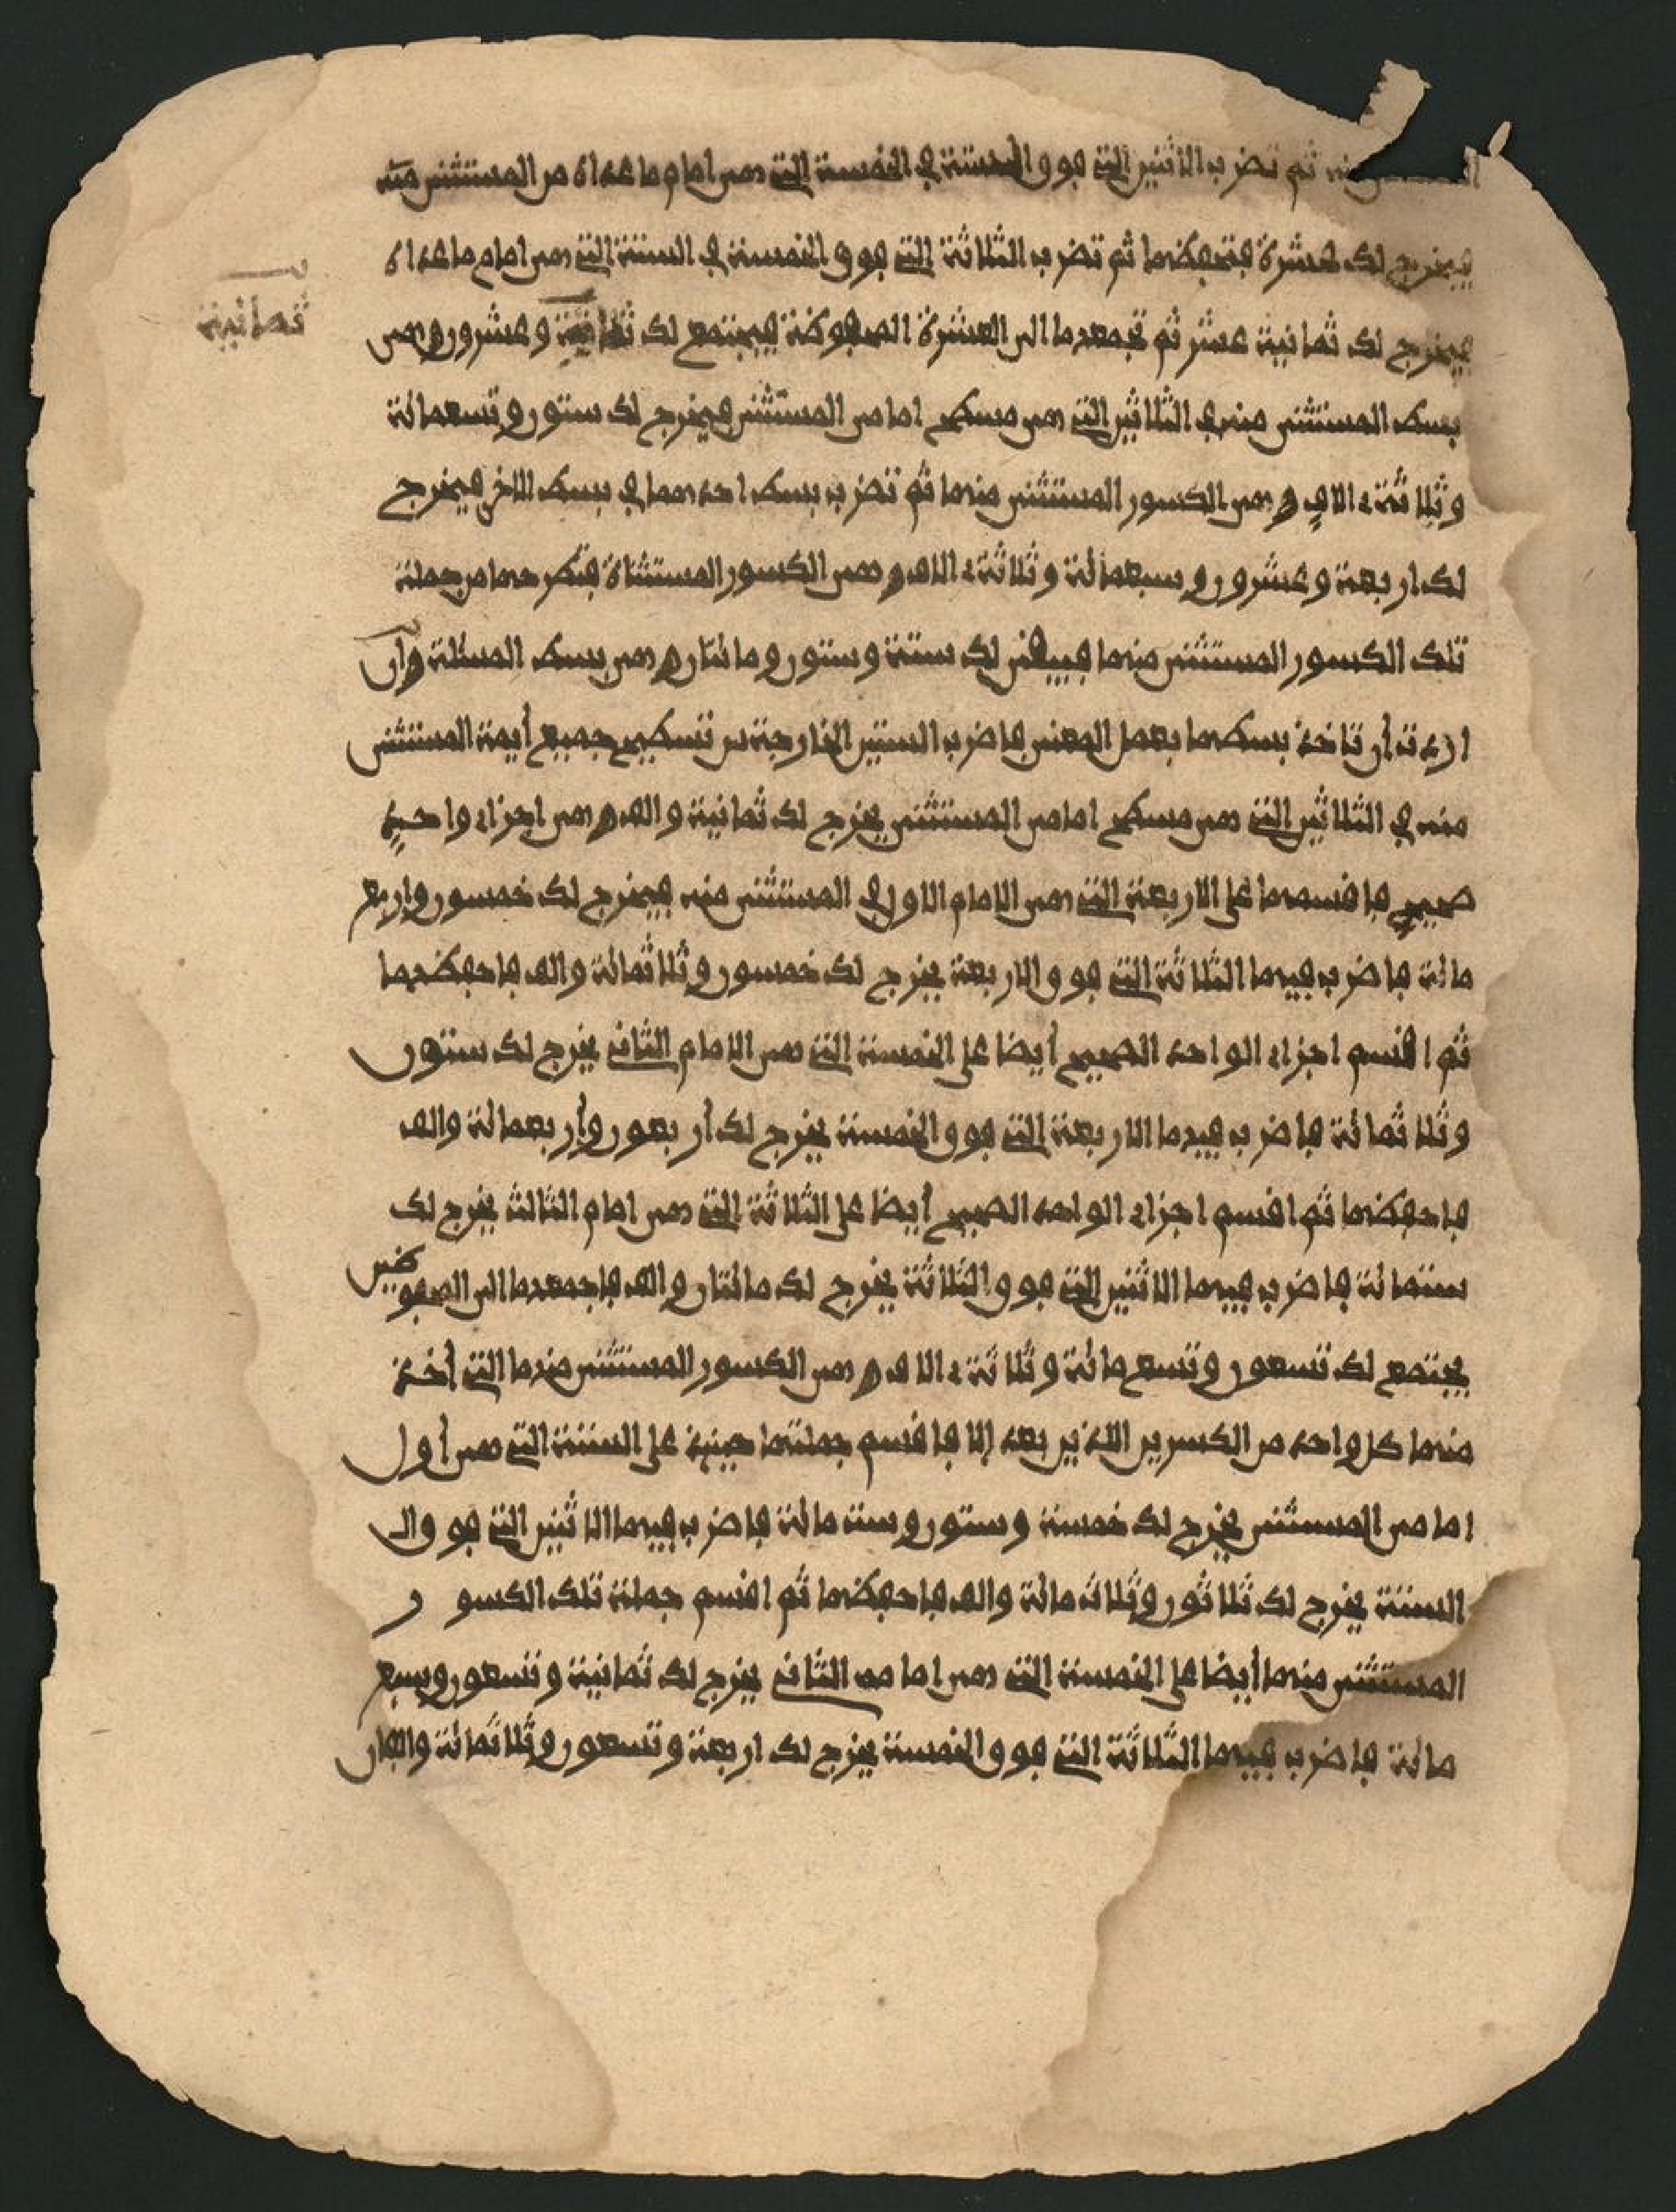 ثم تضرب الاثنين التي فوق الخمسة في الخمسة التي هي امام ما عداه من المستثنى منه
فيخرج لك عشرة فتحفظها ثم تضرب الثلاثة التي فوق الخمسة في الستة التي هي امام ما عداه
فيخرج لك ثمانية عشر ثم تجمعها الى العشرة المحفوظة فيجتمع لك ثمانية وعشرون وهي
ثمانية
بسط المستثنى منه في الثلاثين التي هي مسطح امامي المستثنى فيخرج لك ستون وتسعمائة
وثلاثة ءالاف وهي الكسور المستثنى منها ثم تضرب بسط احدهما في بسط الاخر فيخرج
لك اربعة وعشرون وسبعمائة وثلاثة ءالاف وهي الكسور المستثناة فتطرحها من جملة
تلك الكسور المستثنى منها فيبقى لك ستة وستون ومائتان وهي بسط المسئلة وان
اردت أن تاخذ بسطها بعمل المعنى فاضرب الستين الخارجة من تسطيح جميع أيمة المستثنى
منه في الثلاثين التي هي مسطح امامي المستثنى يخرج لك ثمانية والف وهي اجزاء واحد
صحيح فاقسمها على الاربعة التي هي الامام الاول في المستثنى منه فيخرج لك خمسون واربع
مائة فاضرب فيها الثلاثة التي فوق الاربعة يخرج لك خمسون وثلاثمائة والف فاحفظها
ثم اقسم اجزاء الواحد الصحيح أيضا على الخمسة التي هي الامام الثاني يخرج لك ستون
وثلاثمائة فاضرب فيها الاربعة التي فوق الخمسة يخرج لك أربعون وأربعمائة والف
فاحفظها ثم اقسم اجزاء الواحد الصحيح أيضا على الثلاثة التي هي امام الثالث يخرج لك
ستمائة فاضرب فيها الاثنين التي فوق الثلاثة يخرج لك مائتان والف فاجمعها الى المحفوظين
يجتمع لك تسعون وتسع مائة وثلاثة ءالاف وهي الكسور المستثنى منها التي أخذ
منها كل واحد من الكسرين اللذين بعد إلا فاقسم جملتها حينئذ على الستة التي هي أول
امامي المستثنى يخرج لك خمسة وستون وستة مائة فاضرب فيها الاثنين التي فوق الـ
الستة يخرج لك ثلاثون وثلاث مائة والف فاحفظها ثم اقسم جملة تلك الكسور
المستثنى منها أيضا على الخمسة التي هي امامه الثاني يخرج لك ثمانية وتسعون وسبع
مائة فاضرب فيها الثلاثة التي فوق الخمسة يخرج لك اربعة وتسعون وثلاثمائة والفان